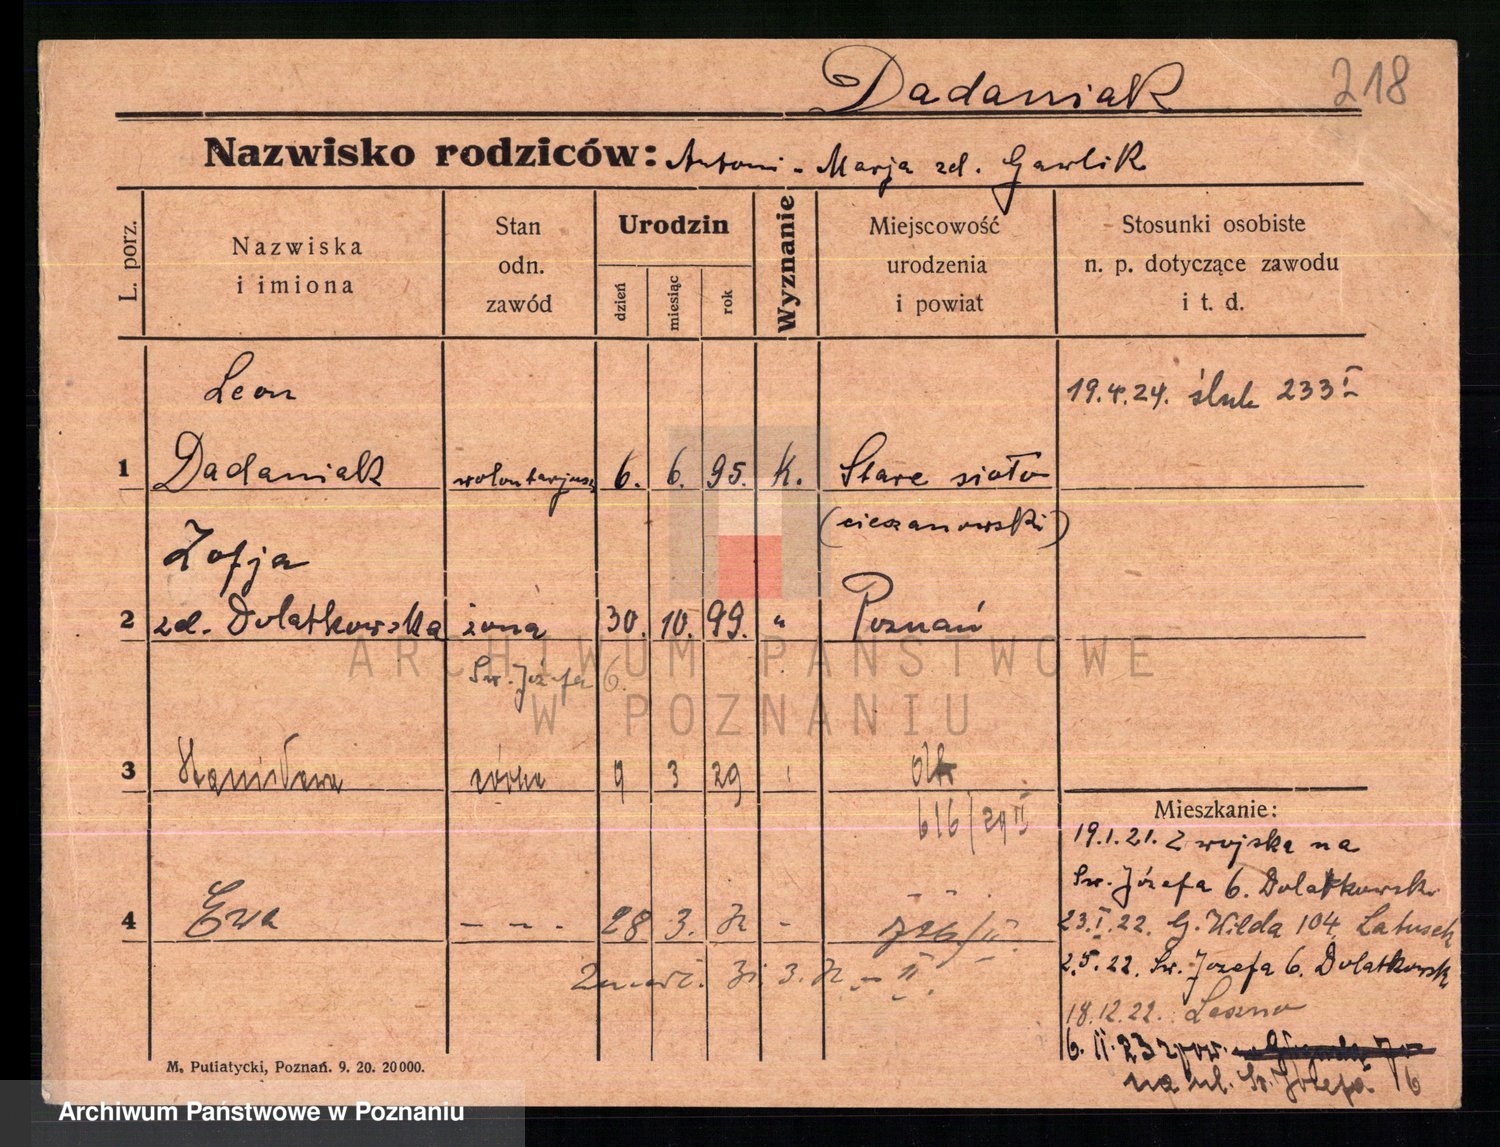 Dadaniak 218
Nazwisko rodziców: Antoni - Marja zd. Gawlik
L. porz.
Nazwiska i imiona
Stan odn. zawód
Urodzin
dzień miesiąc rok
Wyznanie
Miejscowość urodzenia i powiat
Stosunki osobiste n. p. dotyczące zawodu i t. d.
Leon 19.4.24. ślub 233 I
1 Dadaniak wolontarjusz 6. 6. 95. k. Stare sioło
(cieszanowski)
Zofja
2 zd. Dolatkowska żona 30. 10. 99. " Poznań
Św. Józefa 6.
ARCHIWUM PAŃSTWOWE
W POZNANIU
3 Stanisława córka 9 3 29
616/29 II
4 Ewa - - - 28. 3. -
Mieszkanie:
19.1.21. Z wojska na
Św. Józefa 6. Dolatkowsk
23.I.22. G. Wilda 104 Latusek
2.5.22. Św. Józefa 6. Dolatkowsk
18.12.22. Leszno
6.II.23 z pow.
na ul. Św. Józefa 6
M. Putiatycki, Poznań. 9. 20. 20000.
Archiwum Państwowe w Poznaniu